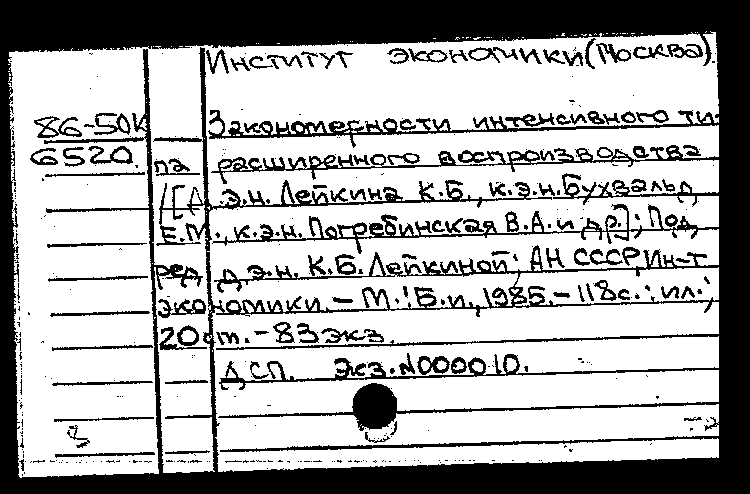 Институт экономики (Москва).
86-50К Закономерности интенсивного ти-
6520. па расширенного воспроизводства
/[Д.э.н. Лейкина К.Б., к.э.н. Бухвальд
Е.М., к.э.н. Погребинская В.А. и др.]; Под
ред. д.э.н. К.Б. Лейкиной; АН СССР, Ин-т
экономики. - М.: Б.и., 1985. - 118с.: ил.;
20 см. - 83 экз.
ДСП. Экз. N000010.
8